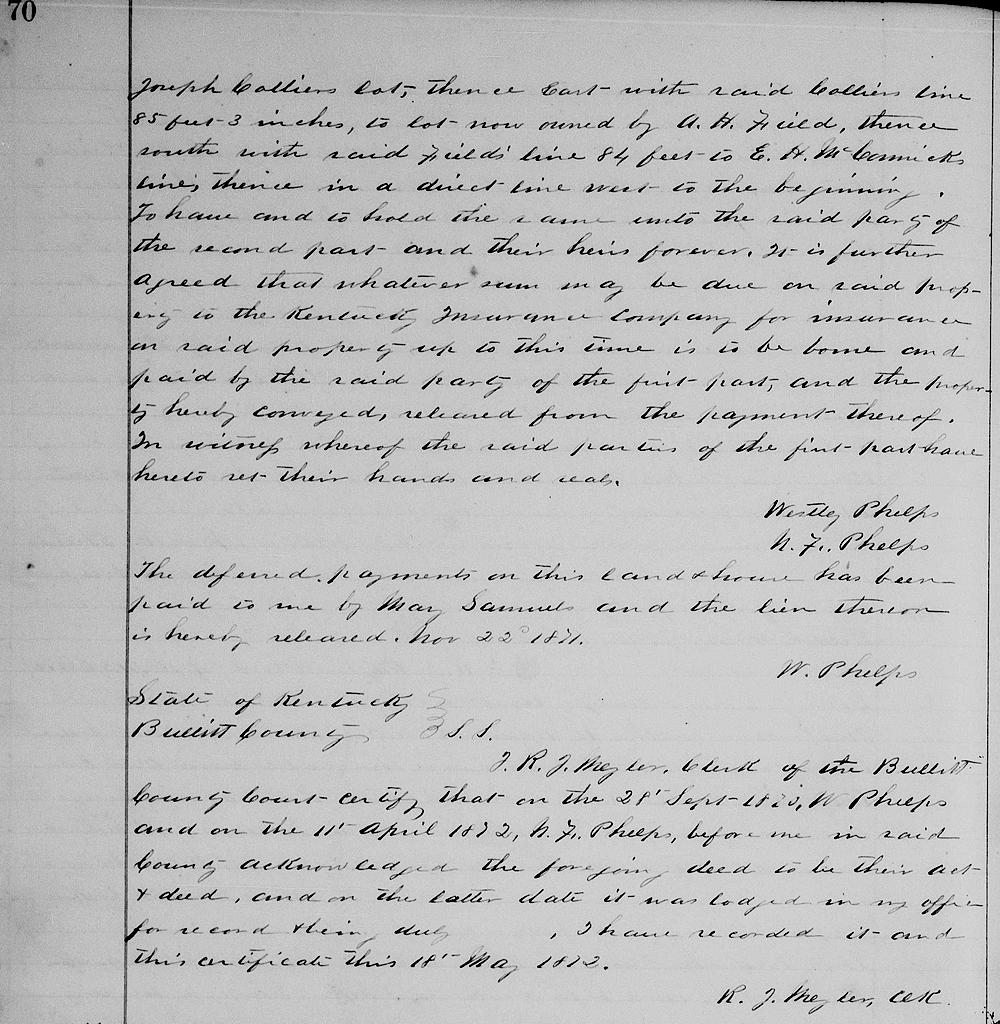 70
Joseph Colliers lot, thence East with said Colliers line
85 feet 3 inches, to lot now owned by A. H. Field, thence
south with said Fields' line 84 feet to E. H. McCormicks
line, thence in a direct line west to the beginning.
To have and to hold the same unto the said party of
the second part and their heirs forever. It is further
agreed that whatever sum may be due on said prop-
erty to the Kentucky Insurance Company for insurance
on said property up to this time is to be borne and
paid by the said party of the first part, and the proper-
ty hereby conveyed, released from the payment thereof.
In witness whereof the said parties of the first part have
hereto set their hands and seals.
Westley Phelps
N. F. Phelps
The deferred payments on this land & house has been
paid to me by May Samuels and the lien thereon
is hereby released. Nov 22d 1871.
W. Phelps
State of Kentucky
Bullitt County S.S.
I. R. J. Meyler, Clerk of the Bullitt
County Court certify that on the 28' Sept W Phelps
and on the 11' April 1872, N. F. Phelps, before me in said
County acknowledged the foregoing deed to be their act
& deed, and on the latter date it was lodged in my office
for record & being duly , I have recorded it and
this certificate this 18' May 1872.
R. J. Meyler, Clk.